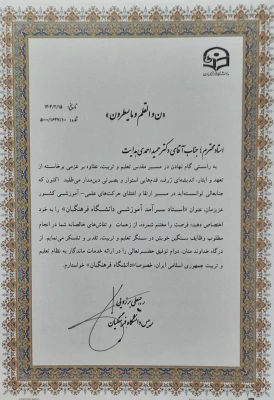 دانشگاه فرهنگیان
«ن و القلم و مایسطرون»
تاریخ: ۱۴۰۴/۲/۱۵
شماره: ۵۰۰۰/۱۶۴۹/۱۰
استاد محترم؛ جناب آقای دکتر حمید احمدی هدایت
به راستی گام نهادن در مسیر مقدس تعلیم و تربیت، علاوه بر عزمی برخاسته از
تعهد و ایثار، اندیشه‌ای ژرف، قدم‌هایی استوار و بصیرتی دین‌مدار می‌طلبد. اکنون که
جنابعالی توانسته‌اید در مسیر ارتقا و اعتلای حرکت‌های علمی- آموزشی کشور
عزیزمان، عنوان «استاد سرآمد آموزشی دانشگاه فرهنگیان» را به خود
اختصاص دهید؛ فرصت را مغتنم شمرده، از زحمات و تلاش‌های خالصانه شما در انجام
مطلوب وظایف سنگین خویش در سنگر تعلیم و تربیت، تقدیر و تشکر می‌نمایم. از
درگاه خداوند منان، دوام توفیق حضرتعالی را در ارائه خدمات ماندگار به نظام تعلیم
و تربیت جمهوری اسلامی ایران، خصوصا «دانشگاه فرهنگیان» خواستارم.
رئیس دانشگاه فرهنگیان